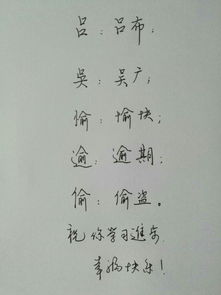 吕：吕布；
吴：吴广；
愉：愉快；
逾：逾期；
偷：偷盗。
祝你学习進步
幸福快乐！